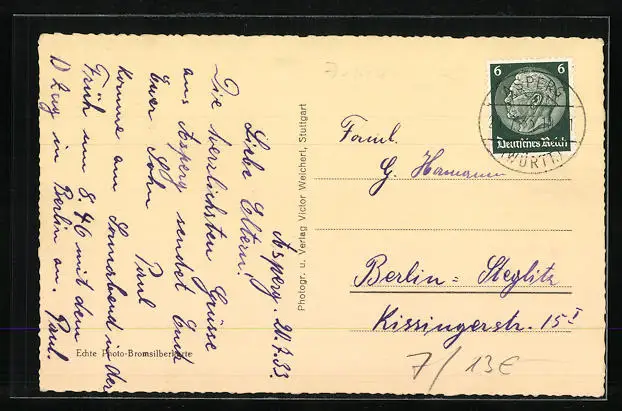 Asperg. 20.7.33.
Liebe Eltern!
Die herrlichsten Grüsse
aus Asperg sendet Euch
Euer Sohn
Paul
Komme am Sonnabend in der
Früh um 8.46 mit dem
D Zug in Berlin an. Paul.
Echte Photo-Bromsilberkarte
Photogr. u. Verlag Victor Weichert, Stuttgart
6 6
Deutsches Reich
ASPERG
(WÜRTT.)
Faml.
G. Hamann
Berlin = Steglitz
Kissingerstr. 15 I
7/ 13€